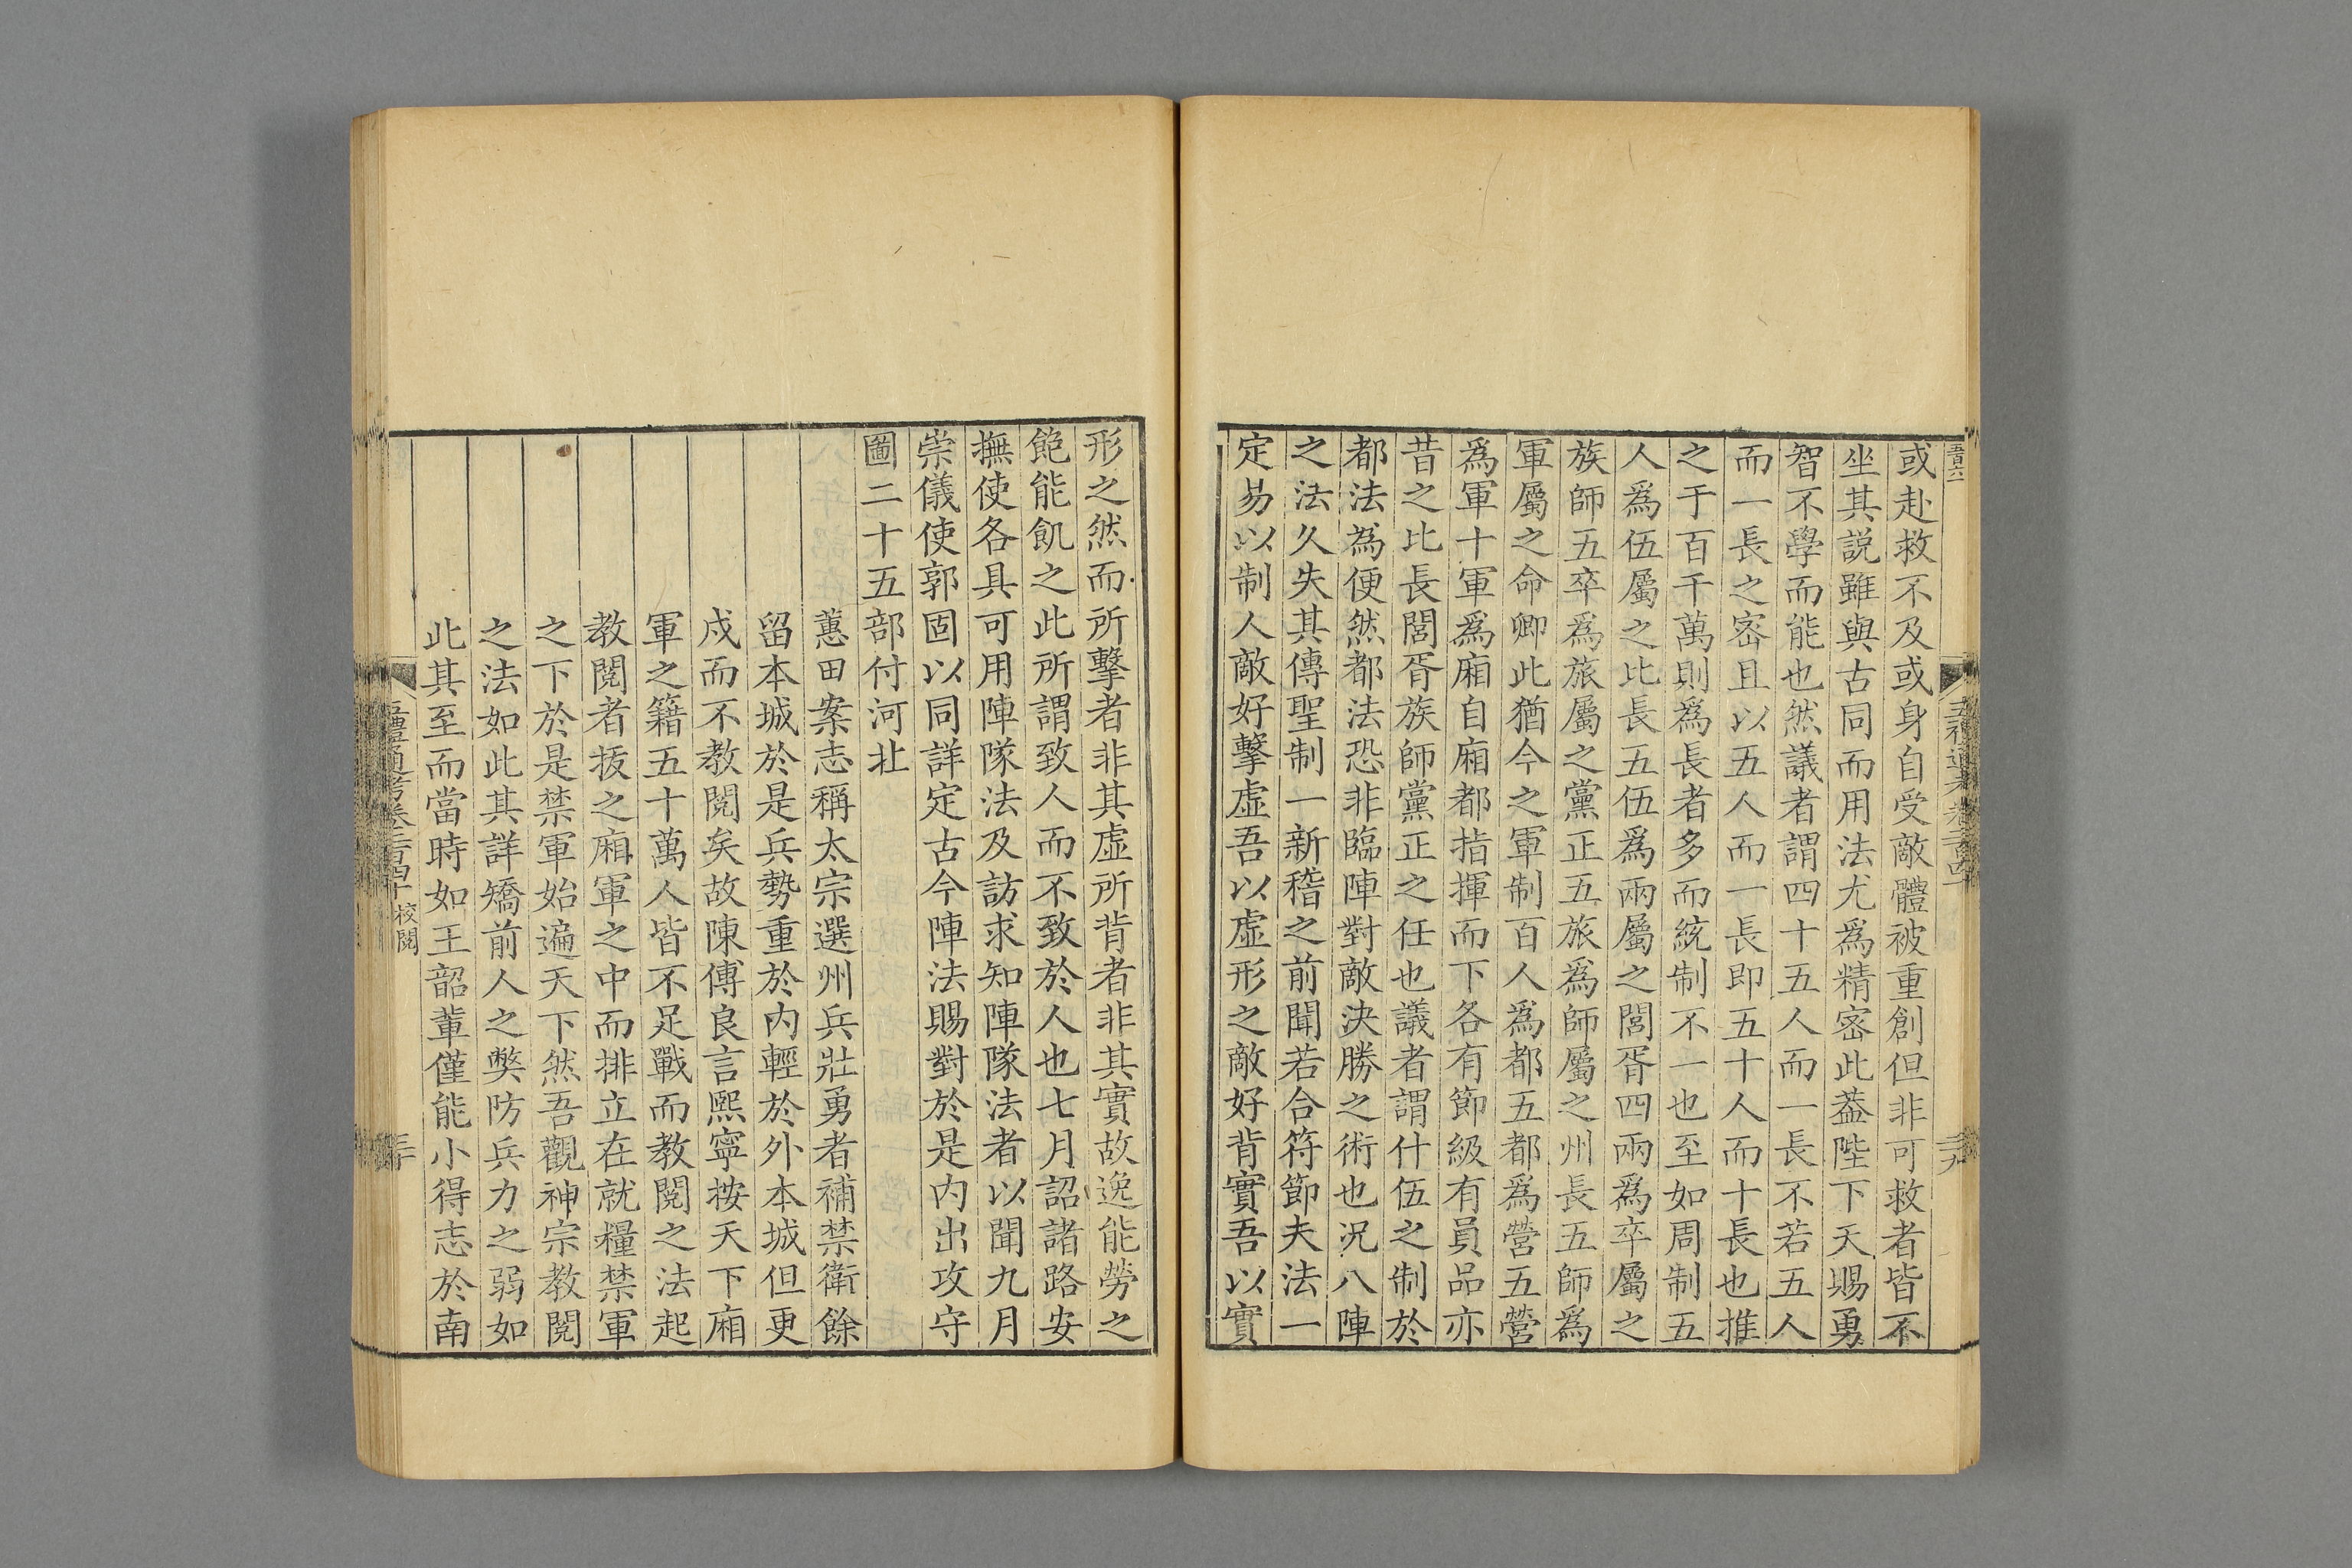 或赴救不及或身自受敵體被重創但非可救者皆不
坐其説雖與古同而用法尤爲精密此葢陛下天賜勇
智不學而能也然議者謂四十五人而一長不若五人
而一長之密且以五人而一長即五十人而十長也推
之于百千萬則爲長者多而統制不一也至如周制五
人爲伍屬之比長五伍爲兩屬之閭胥四兩爲卒屬之
族師五卒爲旅屬之黨正五旅爲師屬之州長五師爲
軍屬之命卿此猶今之軍制百人爲都五都爲營五營
爲軍十軍爲廂自廂都指揮而下各有節級有員品亦
昔之比長閭胥族師黨正之任也議者謂什伍之制於
都法為便然都法恐非臨陣對敵決勝之術也況八陣
之法久失其傳聖制一新稽之前聞若合符節夫法一
定易以制人敵好擊虛吾以虛形之敵好背實吾以實
形之然而所擊者非其虛所背者非其實故逸能勞之
飽能飢之此所謂致人而不致於人也七月詔諸路安
撫使各具可用陣隊法及訪求知陣隊法者以聞九月
崇儀使郭固以同詳定古今陣法賜對於是内出攻守
圖二十五部付河北
蕙田案志稱太宗選州兵壯勇者補禁衛餘
留本城於是兵勢重於内輕於外本城但更
戍而不教閱矣故陳傅良言熙寧按天下廂
軍之籍五十萬人皆不足戰而教閱之法起
教閱者拔之廂軍之中而排立在就糧禁軍
之下於是禁軍始遍天下然吾觀神宗教閱
之法如此其詳矯前人之弊防兵力之弱如
此其至而當時如王韶輩僅能小得志於南
五禮通考卷二百四十 校閱
三十